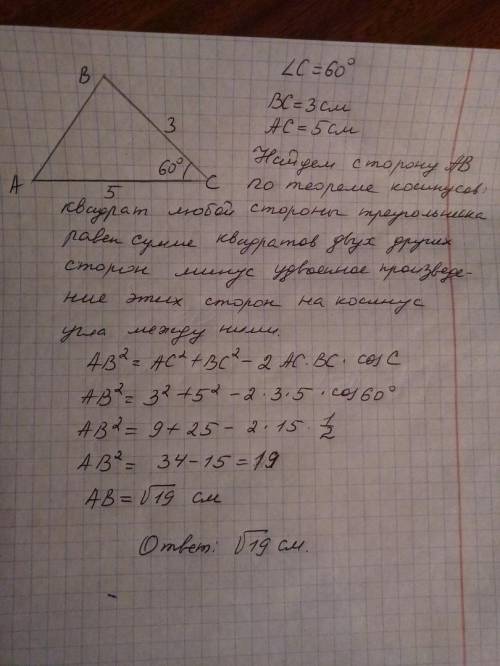 ∠C = 60°
B
BC = 3 см
AC = 5 см
3
60°
A
C
5
Найдем сторону AB
по теореме косинусов:
квадрат любой стороны треугольника
равен сумме квадратов двух других
сторон минус удвоенное произведе-
ние этих сторон на косинус
угла между ними.
AB² = AC² + BC² - 2 AC · BC · cos C
AB² = 3² + 5² - 2 · 3 · 5 · cos 60°
AB² = 9 + 25 - 2 · 15 · 1/2
AB² = 34 - 15 = 19
AB = √19 см
Ответ: √19 см.